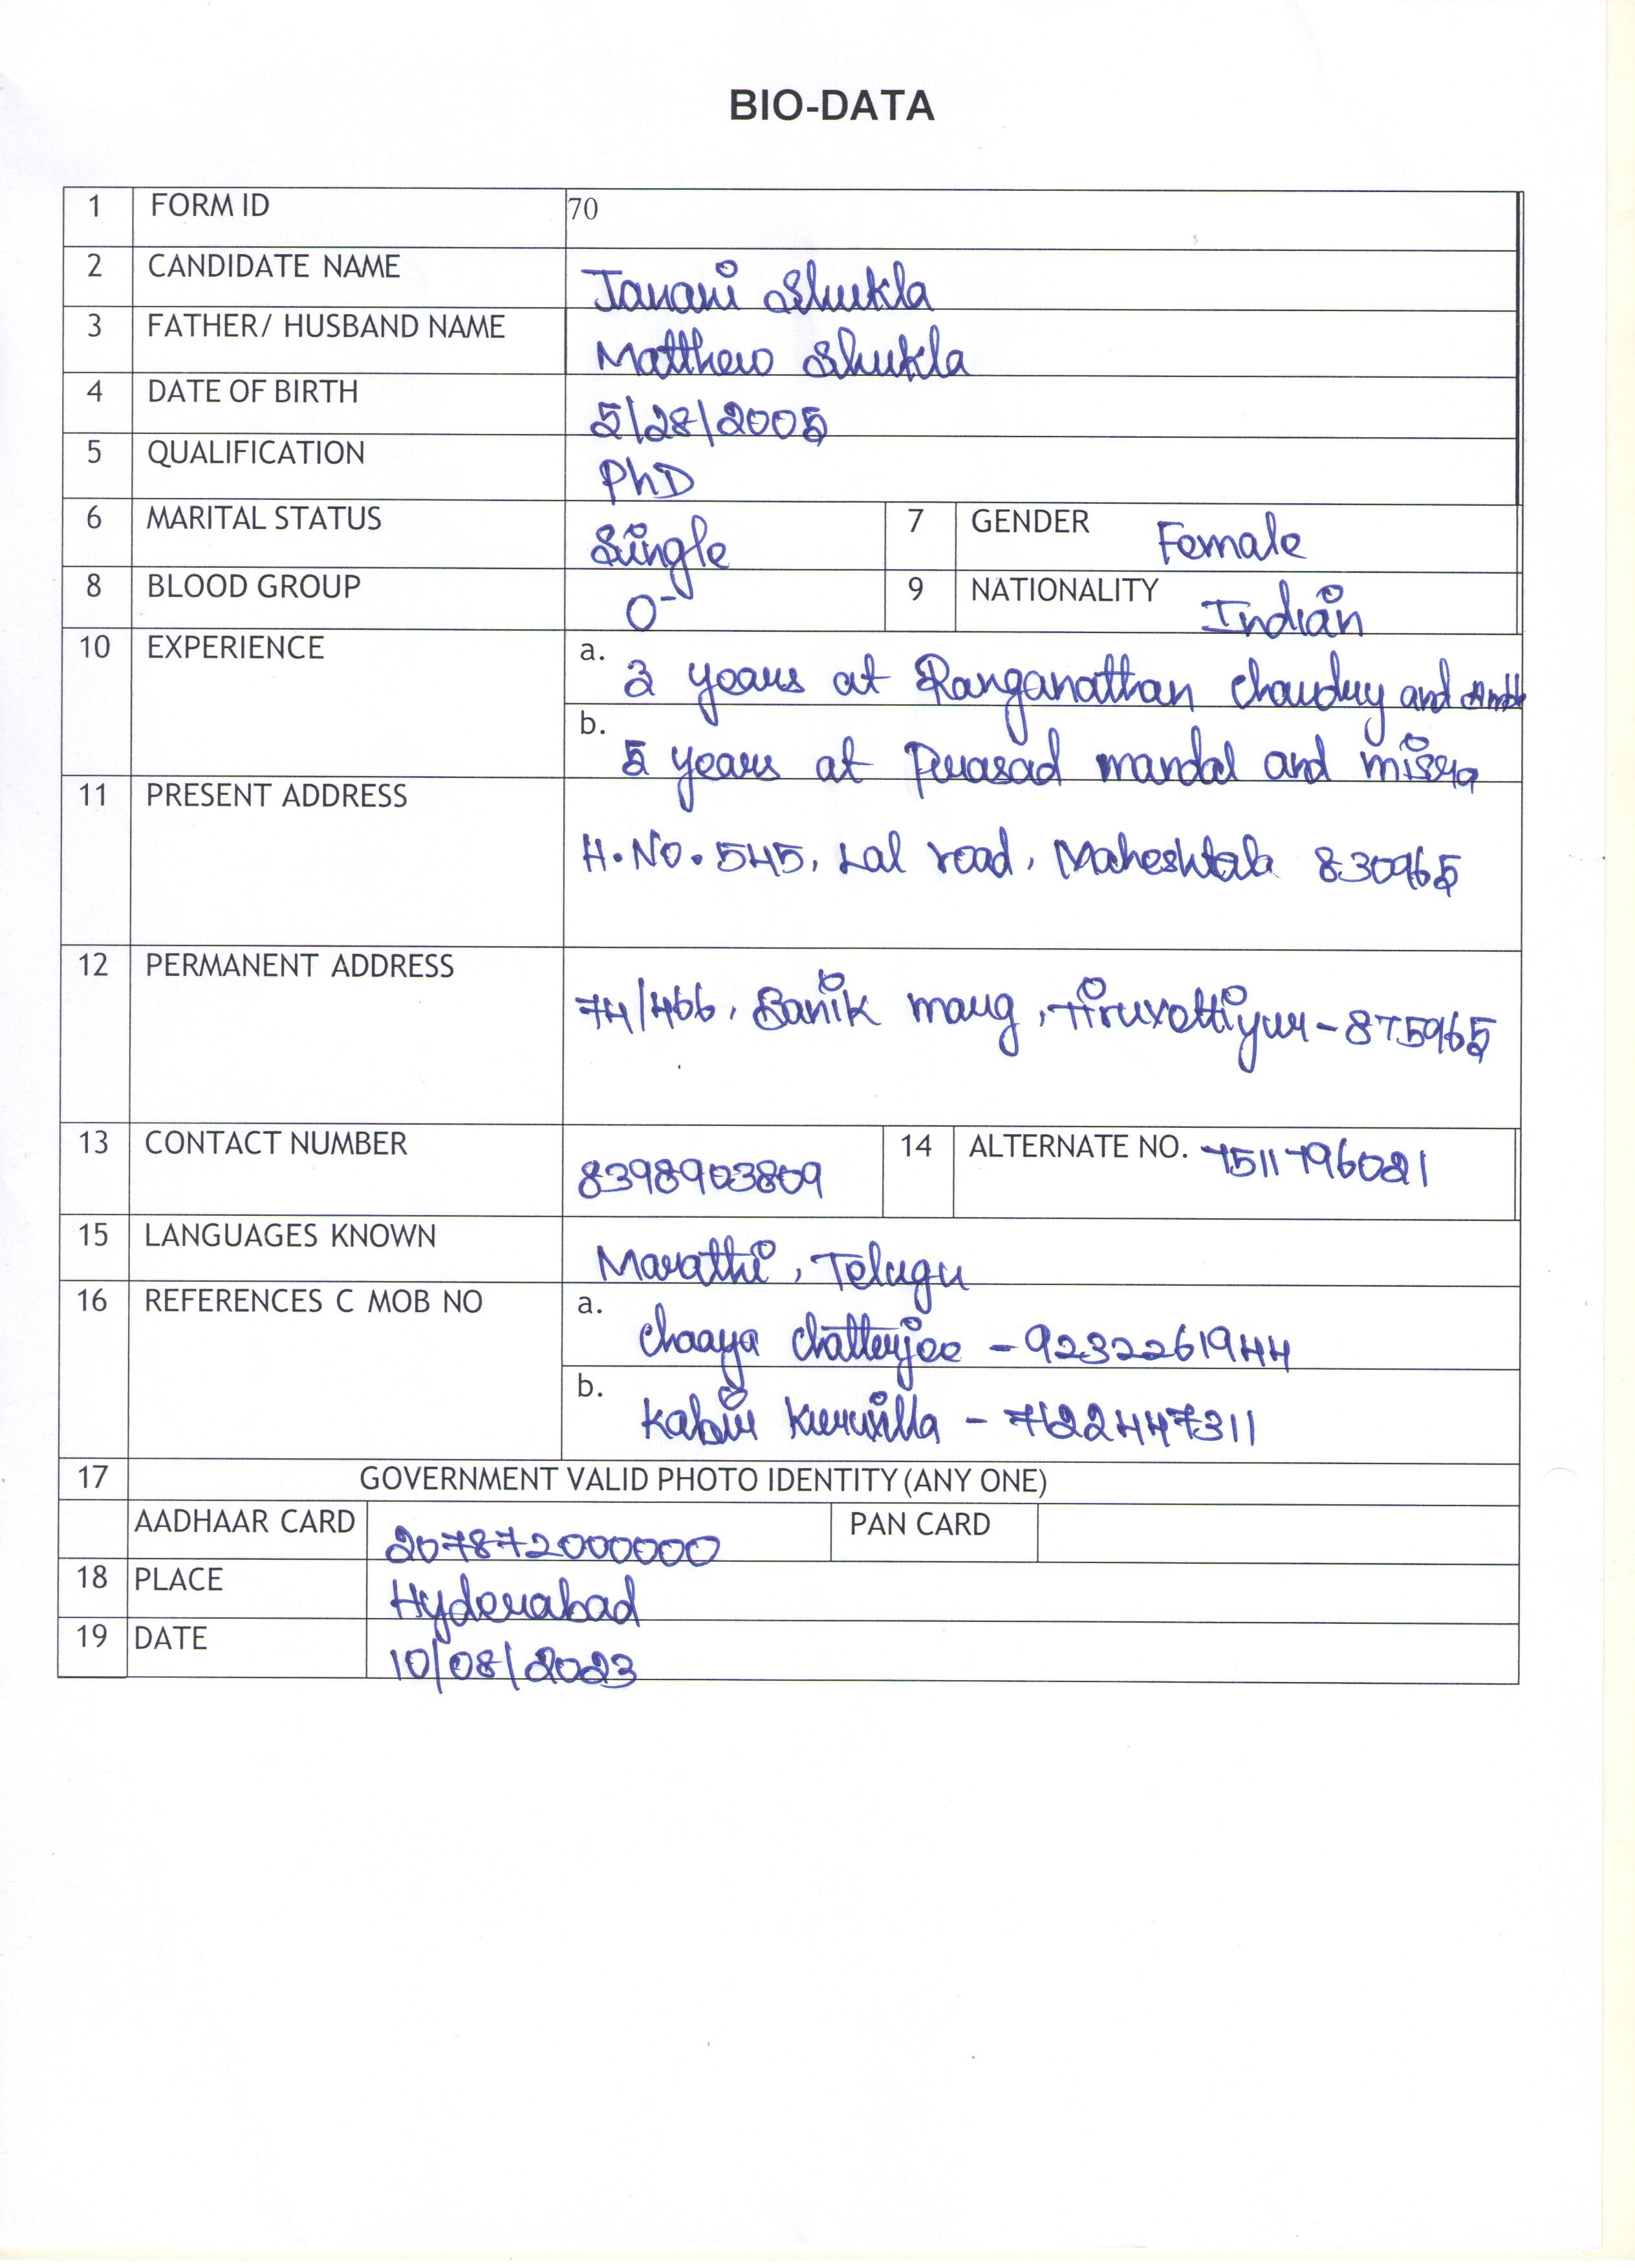 BIO-DATA
1 FORM ID 70
2 CANDIDATE NAME Janani Shukla
3 FATHER/ HUSBAND NAME Matthew Shukla
4 DATE OF BIRTH 5/28/2005
5 QUALIFICATION PhD
6 MARITAL STATUS Single 7 GENDER Female
8 BLOOD GROUP O- 9 NATIONALITY Indian
10 EXPERIENCE a. 3 years at Ranganathan Chaudry and
b. 5 years at Prasad mandal and misra
11 PRESENT ADDRESS
H.No. 545, Lal road, Maheshtala 830965
12 PERMANENT ADDRESS
74/466, Banik marg, Tiruvottiyur - 875965
13 CONTACT NUMBER 8398903809 14 ALTERNATE NO. 7511796021
15 LANGUAGES KNOWN Marathi, Telugu
16 REFERENCES C MOB NO a. Chaaya Chatterjee - 9232261944
b. Kabir Kuruvilla - 7122447311
17 GOVERNMENT VALID PHOTO IDENTITY (ANY ONE)
AADHAAR CARD 207872000000 PAN CARD
18 PLACE Hyderabad
19 DATE 10/08/2023